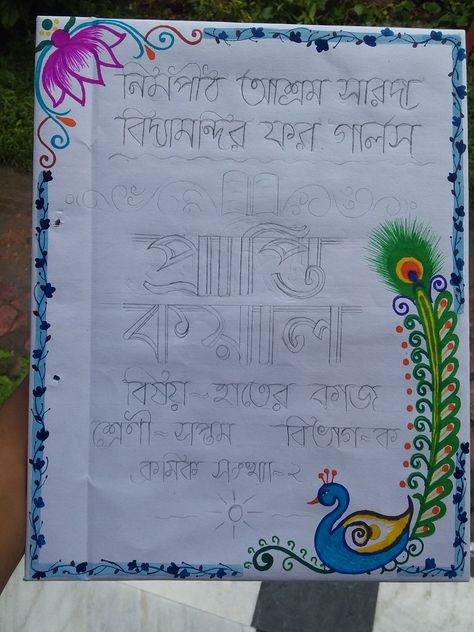 নিমপীঠ আশ্রম সারদা
বিদ্যামন্দির ফর গার্লস্
প্রাপ্তি
কয়াল
বিষয় ~ হাতের কাজ
শ্রেণী ~ সপ্তম বিভাগ ~ ক
ক্রমিক সংখ্যা ~ ২